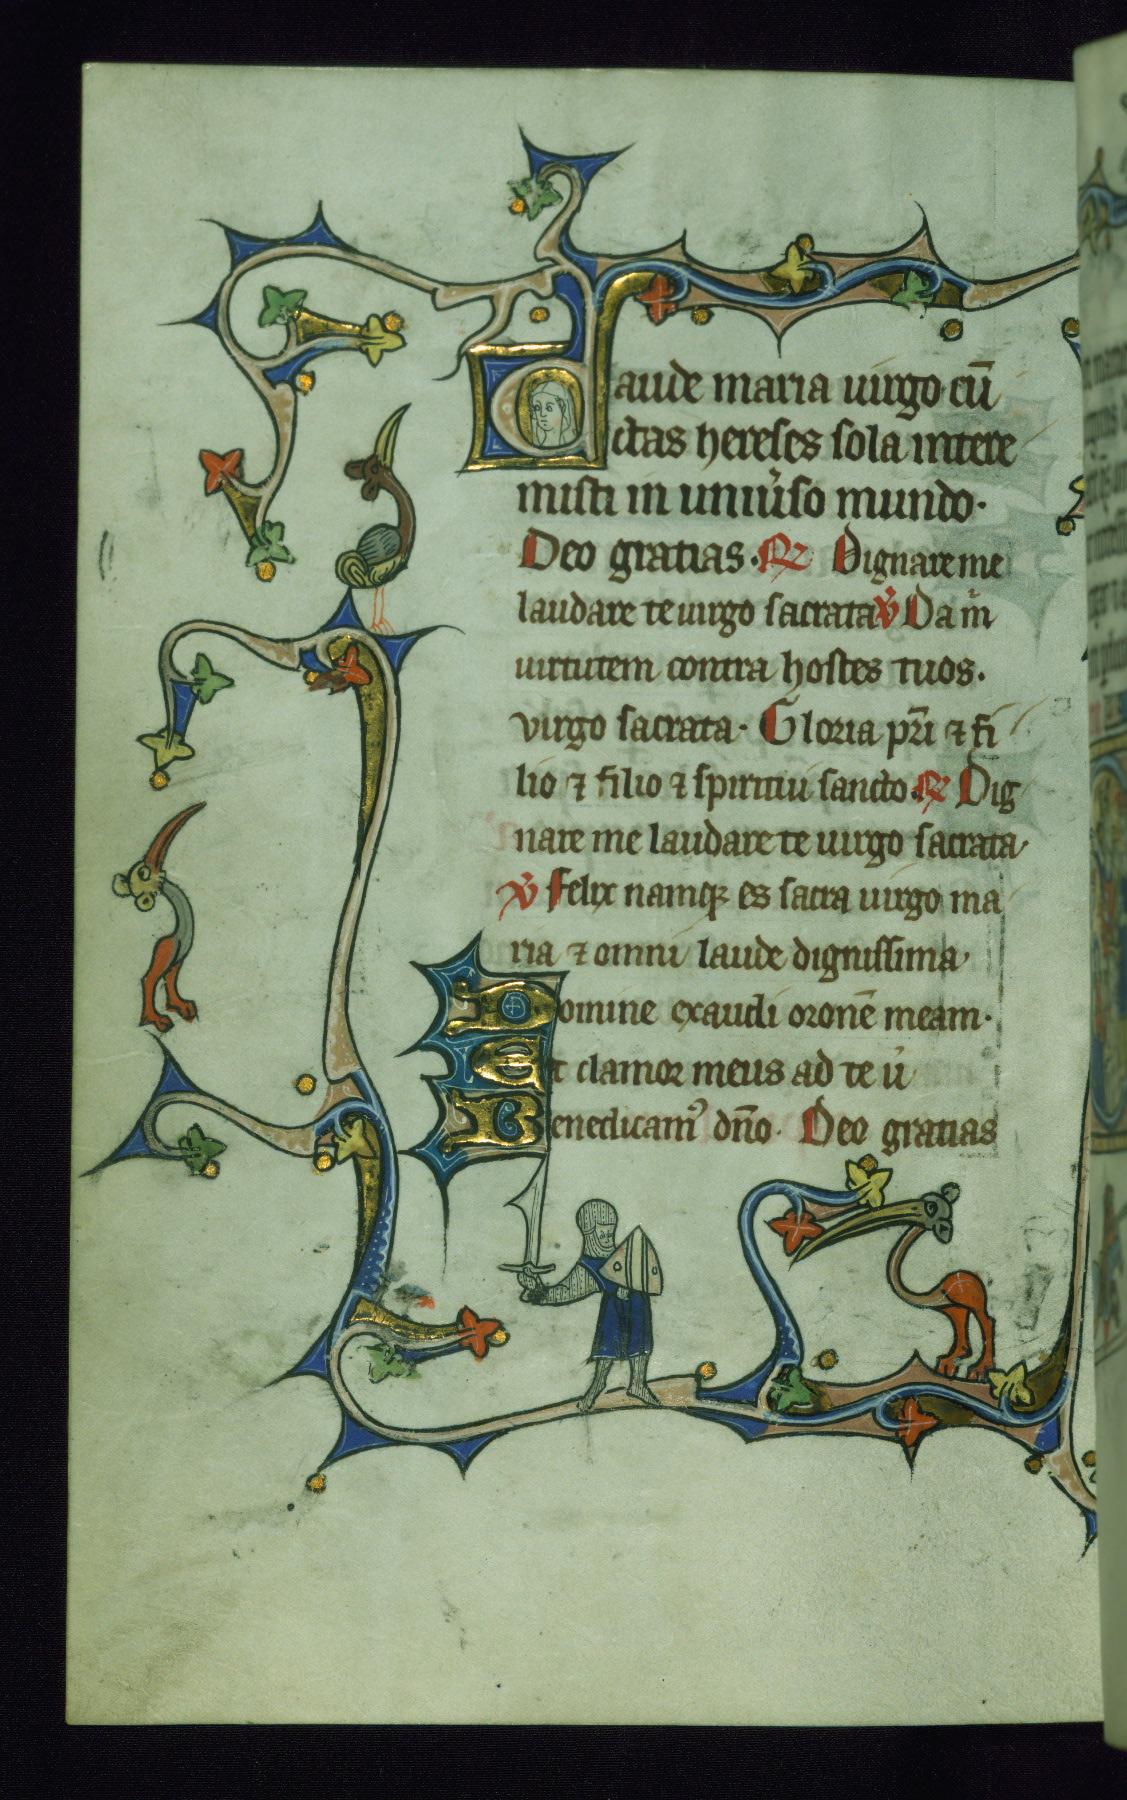 Gaude maria uirgo cū
ctas hereses sola intere
misti in uniũso mundo.
Deo gratias. ℟ Dignare me
laudare te uirgo sacrata ℣ Da m̃
uirtutem contra hostes tuos.
virgo sacrata. Gloria pr̃i ⁊ fi
lio ⁊ filio ⁊ spiritui sancto. ℟ Dig
nare me laudare te uirgo sacrata
℣ Felix namqꝫ es sacra uirgo ma
ria ⁊ omni laude dignissima
Domine exaudi oronē meam.
Et clamor meus ad te ũ
Benedicam᷒ dño. Deo gratias